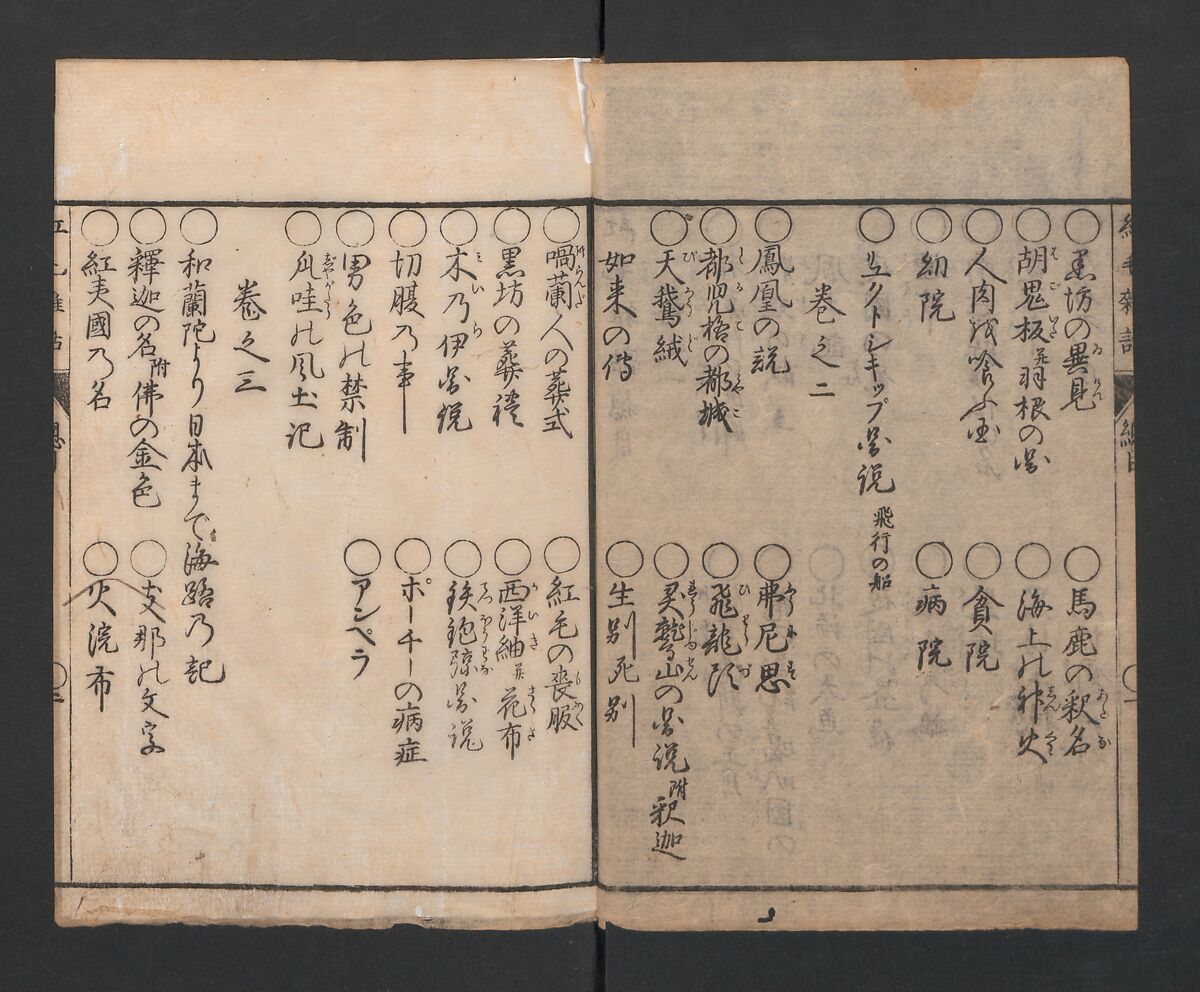 紅毛雑話
總目
○黒坊の異見 ○馬鹿の釈名
○胡鬼板並羽根の図 ○海上の神火
○人肉を喰ふ国 ○貧院
○幼院 ○病院
○リュクトシキップ図説 飛行の船
巻之二
○鳳凰の説 ○弗尼思
○都児格の都城 ○飛龍頭
○天鵞絨 ○灵鷲山の図説附釈迦
如来の傳 ○生別死別
○喎蘭人の葬式 ○紅毛の喪服
○黒坊の葬礼 ○西洋紬並花布
○木乃伊図説 ○鉄鉋図説
○切腹乃事 ○ポーチーの病症
○男色の禁制 ○アンペラ
○爪哇の風土記
巻之三
○和蘭陀より日本まで海路乃記
○釋迦の名附佛の金色 ○支那の文字
○紅夷國乃名 ○火浣布